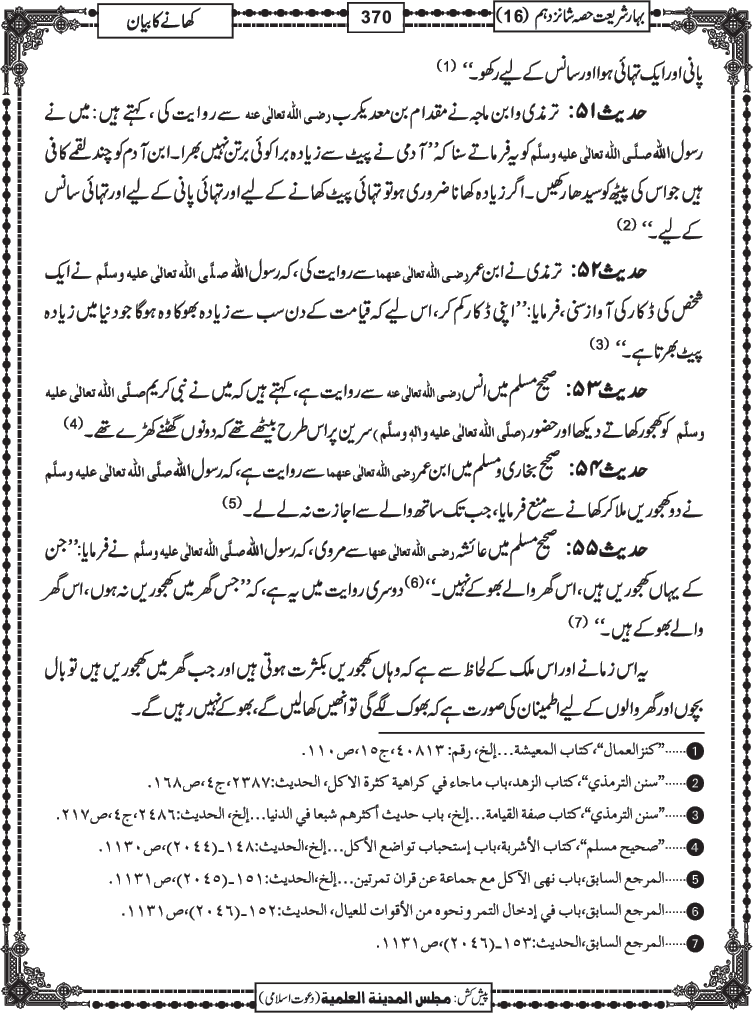 بہار شریعت حصہ شانزدہم (16)
370
کھانے کا بیان
پانی اور ایک تہائی ہوا اور سانس کے لیے رکھو۔‘‘ (1)
حدیث ۵۱: ترمذی و ابن ماجہ نے مقدام بن معدیکرب رضی اللہ تعالٰی عنہ سے روایت کی ، کہتے ہیں : میں نے
رسول اللہ صلَّی اللہ تعالٰی علیہ وسلَّم کو یہ فرماتے سنا کہ ’’آدمی نے پیٹ سے زیادہ برا کوئی برتن نہیں بھرا۔ ابن آدم کو چند لقمے کافی
ہیں جو اس کی پیٹھ کو سیدھا رکھیں۔ اگر زیادہ کھانا ضروری ہو تو تہائی پیٹ کھانے کے لیے اور تہائی پانی کے لیے اور تہائی سانس
کے لیے۔‘‘ (2)
حدیث ۵۲: ترمذی نے ابن عمر رضی اللہ تعالٰی عنہما سے روایت کی، کہ رسول اللہ صلَّی اللہ تعالٰی علیہ وسلَّم نے ایک
شخص کی ڈکار کی آواز سنی، فرمایا: ’’اپنی ڈکار کم کر، اس لیے کہ قیامت کے دن سب سے زیادہ بھوکا وہ ہوگا جو دنیا میں زیادہ
پیٹ بھرتا ہے۔‘‘ (3)
حدیث ۵۳: صحیح مسلم میں انس رضی اللہ تعالٰی عنہ سے روایت ہے، کہتے ہیں کہ میں نے نبی کریم صلَّی اللہ تعالٰی علیہ
وسلَّم کو کھجور کھاتے دیکھا اور حضور (صلَّی اللہ تعالٰی علیہ واٰلہٖ وسلَّم) سرین پر اس طرح بیٹھے تھے کہ دونوں گھٹنے کھڑے تھے۔ (4)
حدیث ۵۴: صحیح بخاری و مسلم میں ابن عمر رضی اللہ تعالٰی عنہما سے روایت ہے، کہ رسول اللہ صلَّی اللہ تعالٰی علیہ وسلَّم
نے دو کھجوریں ملا کر کھانے سے منع فرمایا، جب تک ساتھ والے سے اجازت نہ لے لے۔ (5)
حدیث ۵۵: صحیح مسلم میں عائشہ رضی اللہ تعالٰی عنہا سے مروی، کہ رسول اللہ صلَّی اللہ تعالٰی علیہ وسلَّم نے فرمایا: ’’جن
کے یہاں کھجوریں ہیں، اس گھر والے بھوکے نہیں۔‘‘ (6) دوسری روایت میں یہ ہے، کہ ’’جس گھر میں کھجوریں نہ ہوں، اس گھر
والے بھوکے ہیں۔‘‘ (7)
یہ اس زمانے اور اس ملک کے لحاظ سے ہے کہ وہاں کھجوریں بکثرت ہوتی ہیں اور جب گھر میں کھجوریں ہیں تو بال
بچوں اور گھر والوں کے لیے اطمینان کی صورت ہے کہ بھوک لگے گی تو انھیں کھالیں گے، بھوکے نہیں رہیں گے۔
1 ......”کنزالعمال“، کتاب المعیشة...إلخ، رقم: ٤٠٨١٣، ج١٥، ص١١٠.
2 ......”سنن الترمذي“، کتاب الزهد، باب ماجاء في کراهیة کثرة الاکل، الحدیث: ٢٣٨٧، ج٤، ص١٦٨.
3 ......”سنن الترمذي“، کتاب صفة القیامة...إلخ، باب حدیث أکثرهم شبعا في الدنیا...إلخ، الحدیث: ٢٤٨٦، ج٤، ص٢١٧.
4 ......”صحیح مسلم“، کتاب الأشربة، باب إستحباب تواضع الأکل...إلخ، الحدیث: ١٤٨ـ(٢٠٤٤)، ص١١٣٠.
5 ......المرجع السابق، باب نهی الآکل مع جماعة عن قران تمرتین...إلخ، الحدیث: ١٥١ـ(٢٠٤٥)، ص١١٣١.
6 ......المرجع السابق، باب في إدخال التمر ونحوه من الأقوات للعیال، الحدیث: ١٥٢ـ(٢٠٤٦)، ص١١٣١.
7 ......المرجع السابق، الحدیث: ١٥٣ـ(٢٠٤٦)، ص١١٣١.
پیش کش: مجلس المدینة العلمیة (دعوت اسلامی)